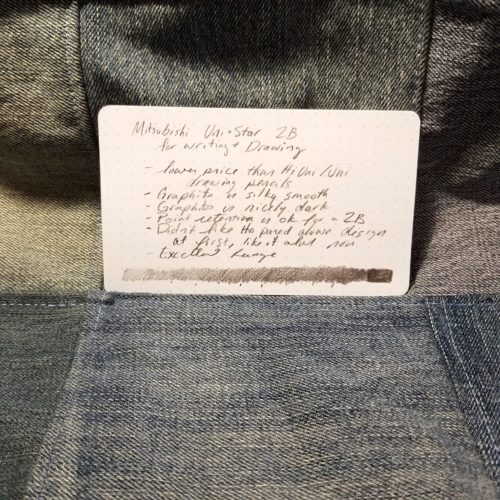 Mitsubishi Uni•Star 2B
for writing + Drawing
- lower price than Hi Uni/Uni
drawing pencils
- Graphite is silky smooth
- Graphite is nicely dark
- Point retention is ok for a 2B
- Didn't like the pared down design
at first, like it a lot now
- Excellent Range